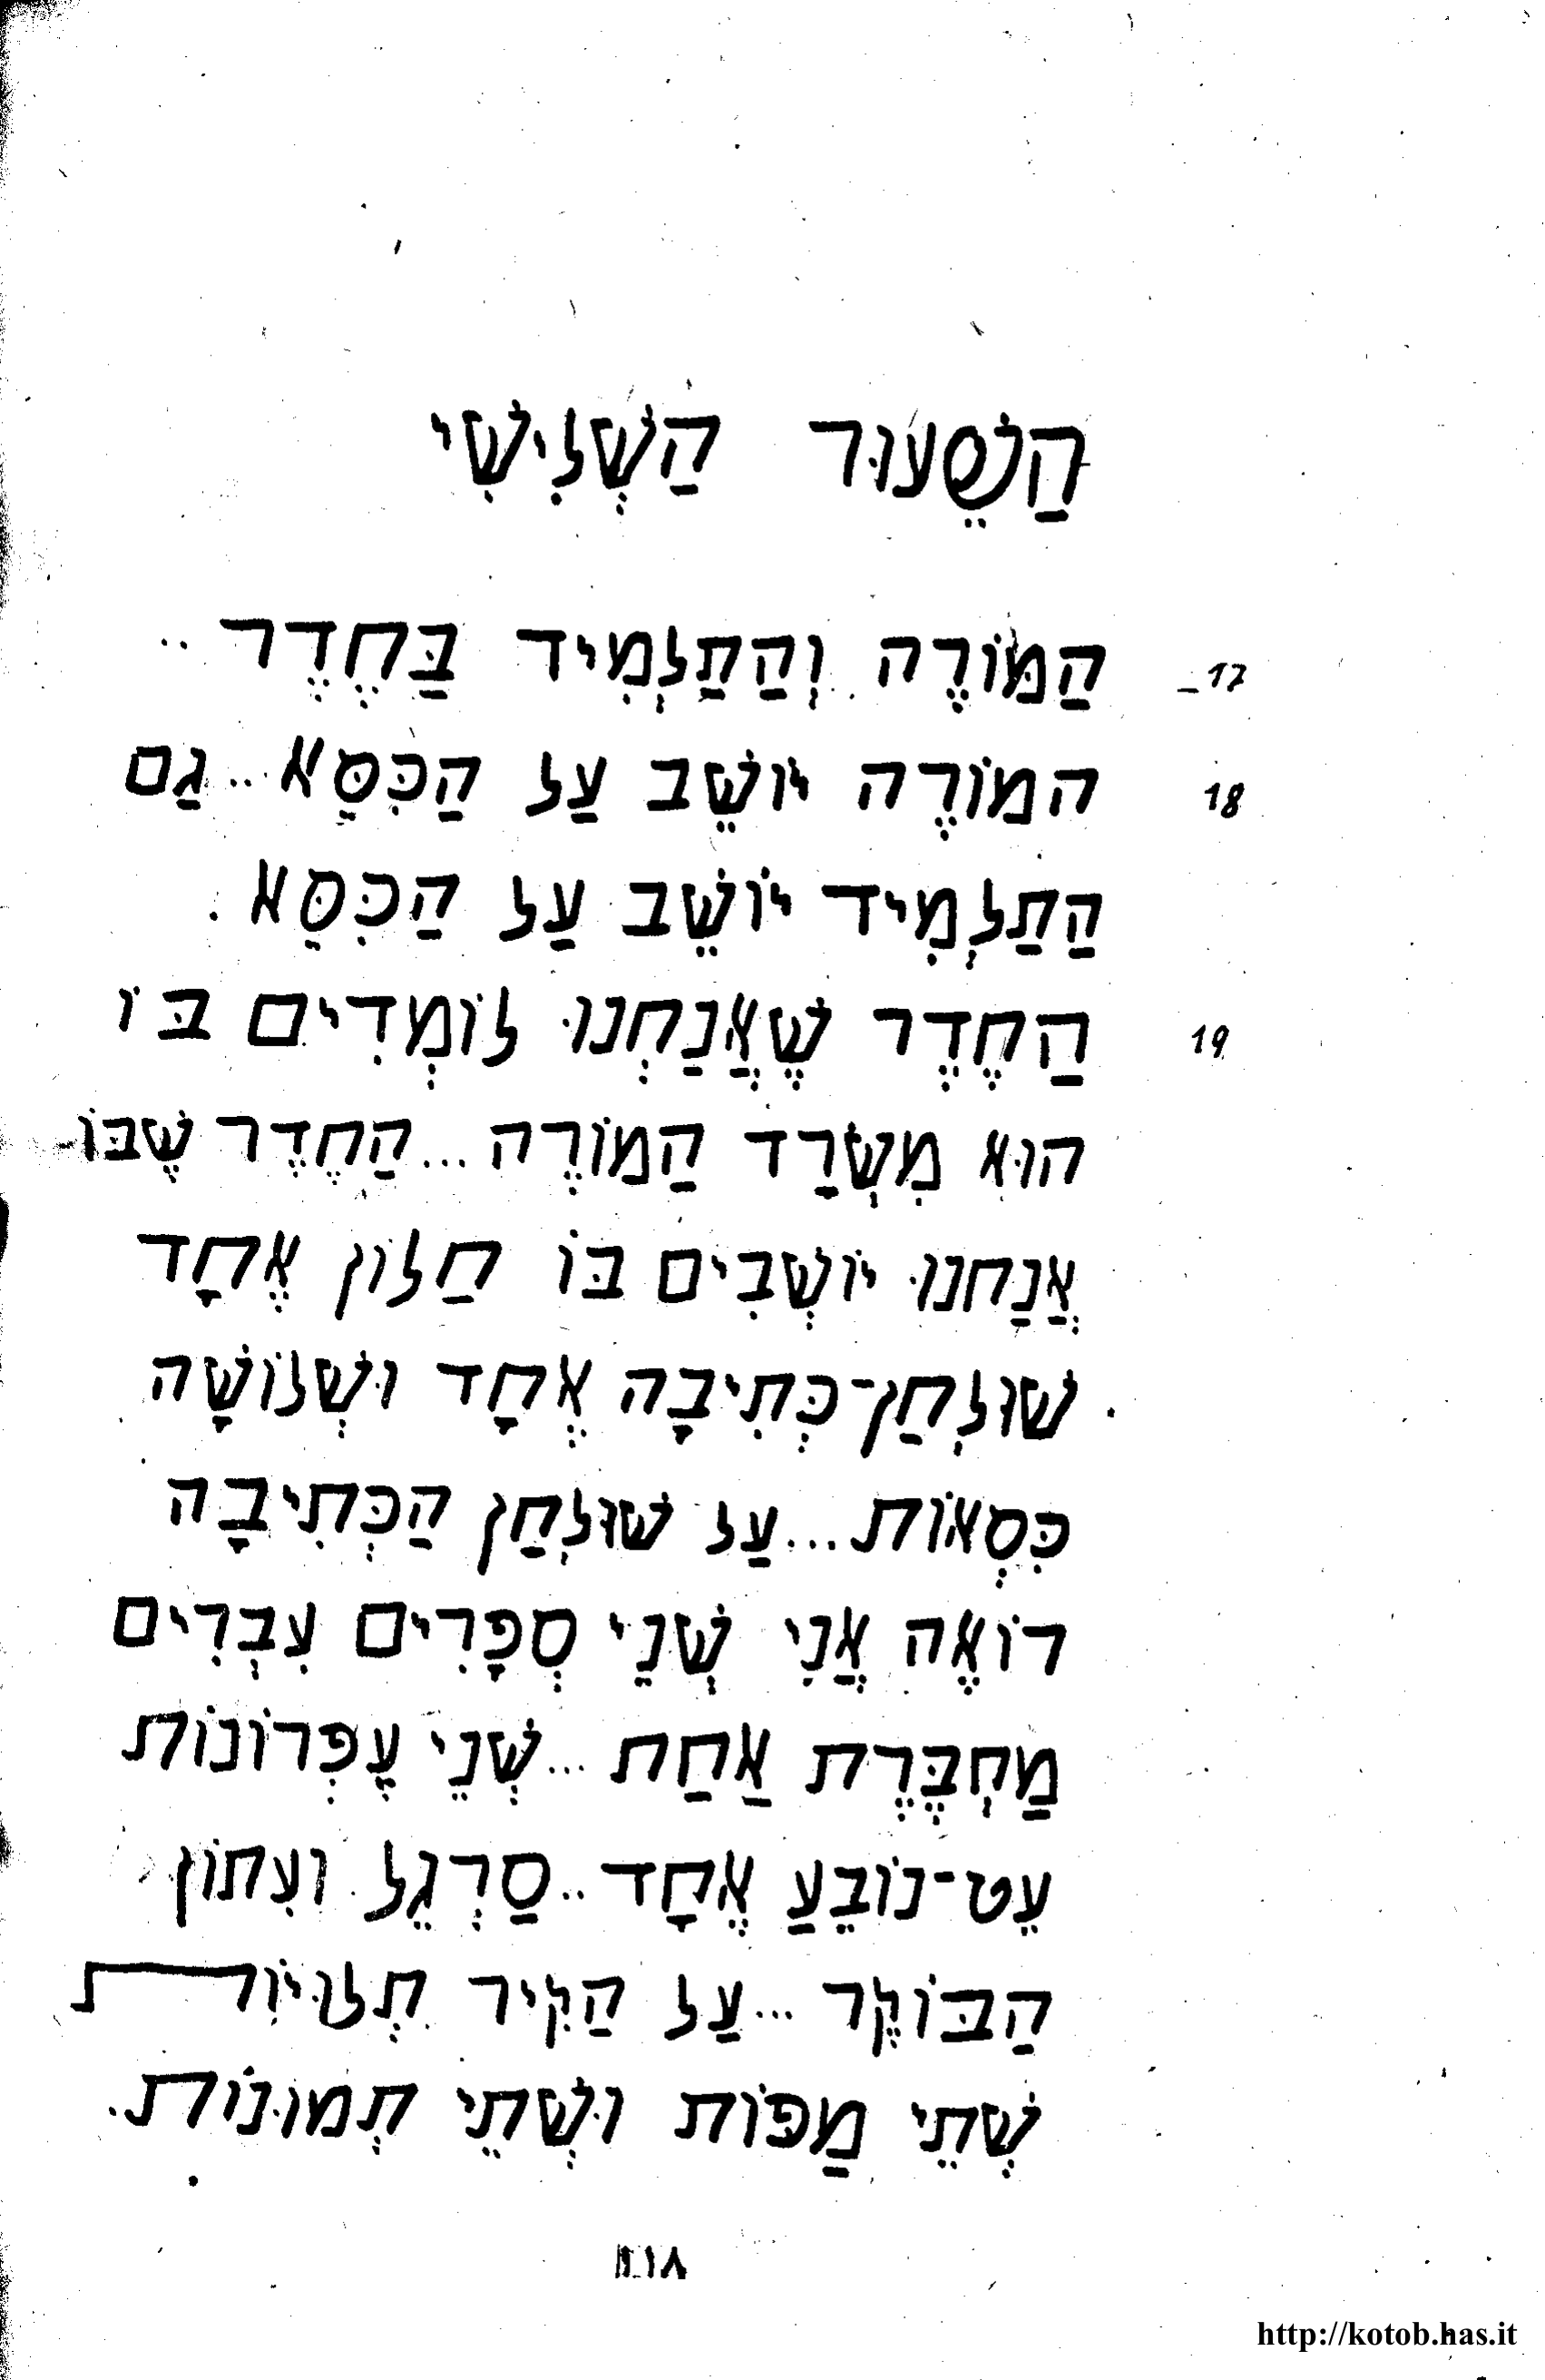 הַשֵׁעוּר הַשְׁלִישִׁי
17_ הַמּוֹרֶה וְהַתַלְמִיד בַּחֶדֶר ..
18 המוֹרֶה יוֹשֵׁב עַל הַכִּסֵּא ... גַם
הַתַלְמִיד יוֹשֵׁב עַל הַכִּסֵּא .
19 הַחֶדֶר שֶׁאֲנַחְנוּ לוֹמְדִים בּוֹ
הוּא מִשְׂרַד הַמוֹרֶה ... הַחֶדֶר שֶׁבּוֹ
אֲנַחנוּ יוֹשְׁבִים בּוֹ חַלוֹן אֶחָד
שׁוּלְחַן־כְּתִיבָה אֶחָד וּשְׁלוֹשָׁה
כִּסְאוֹת ... עַל שׁוּלְחַן הַכְּתִיבָה
רוֹאֶה אֲנִי שְׁנֵי סְפָרִים עִבְרִים
מַחְבֶּרֶת אַחַת ... שְׁנֵי עֶפְרוֹנוֹת
עֵט־נוֹבֵעַ אֶחָד .. סַרְגֵל ועִתוֹן
הַבּוֹקֶר ... עַל הַקִיר תְלוּיוֹת
שְׁתֵי מַפּוֹת וּשְׁתֵי תְמוּנוֹת.
http://kotob.has.it